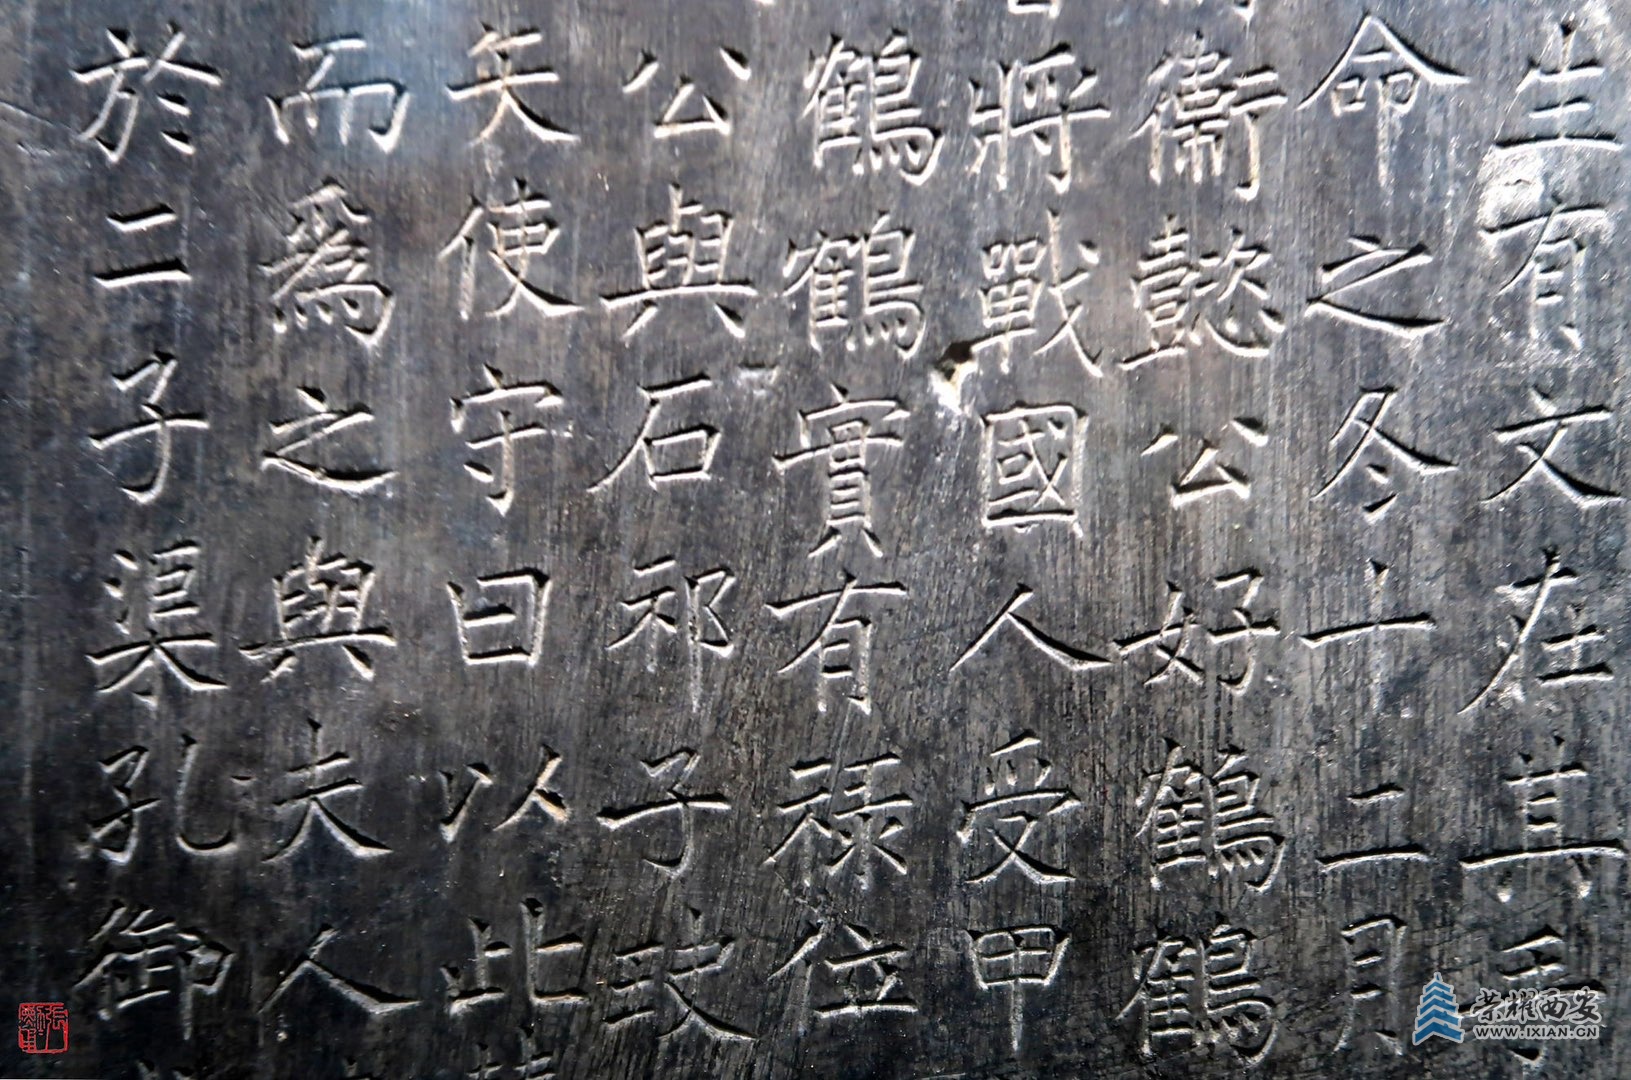 生有文在其手
命之冬十二月
衞懿公好鶴鶴
將戰國人受甲
鶴鶴實有禄位
公與石祁子玦
矢使守曰以此
而爲之與夫人
於二子渠孔御
荣耀西安
WWW.IXIAN.CN